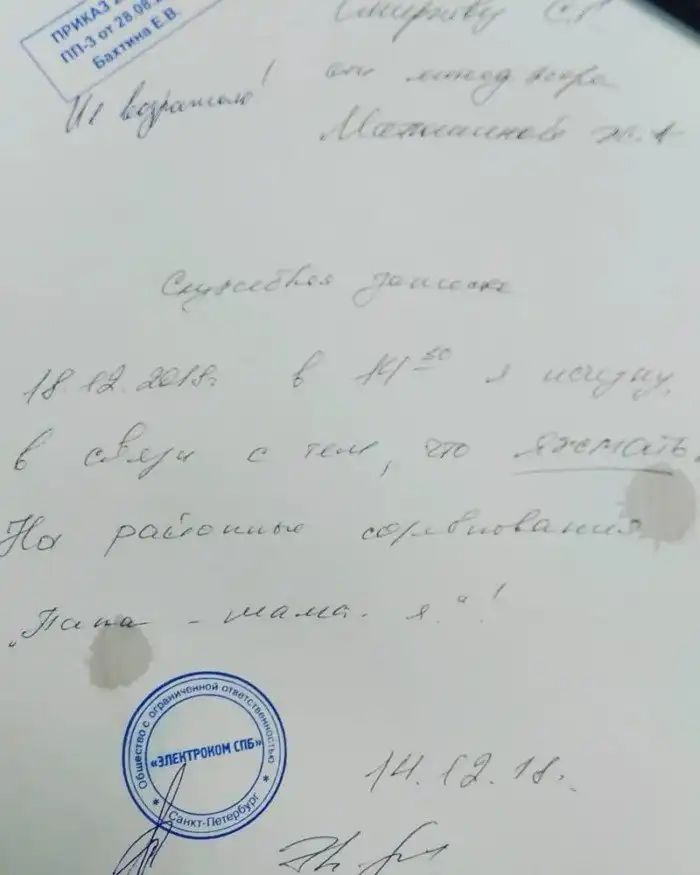 ПРИКАЗ
ПП-3 от 28.08.
Бахтина Е.В.
Смирнову С.
Не возражаю!
от менеджера
Служебная записка
18.12.2018г. в 14⁵⁰ я исчезну,
в связи с тем, что яжемать.
На районные соревнования
„Папа - мама - я"!
Общество с ограниченной ответственностью
«ЭЛЕКТРОКОМ СПБ»
* Санкт-Петербург *
14.12.18г.